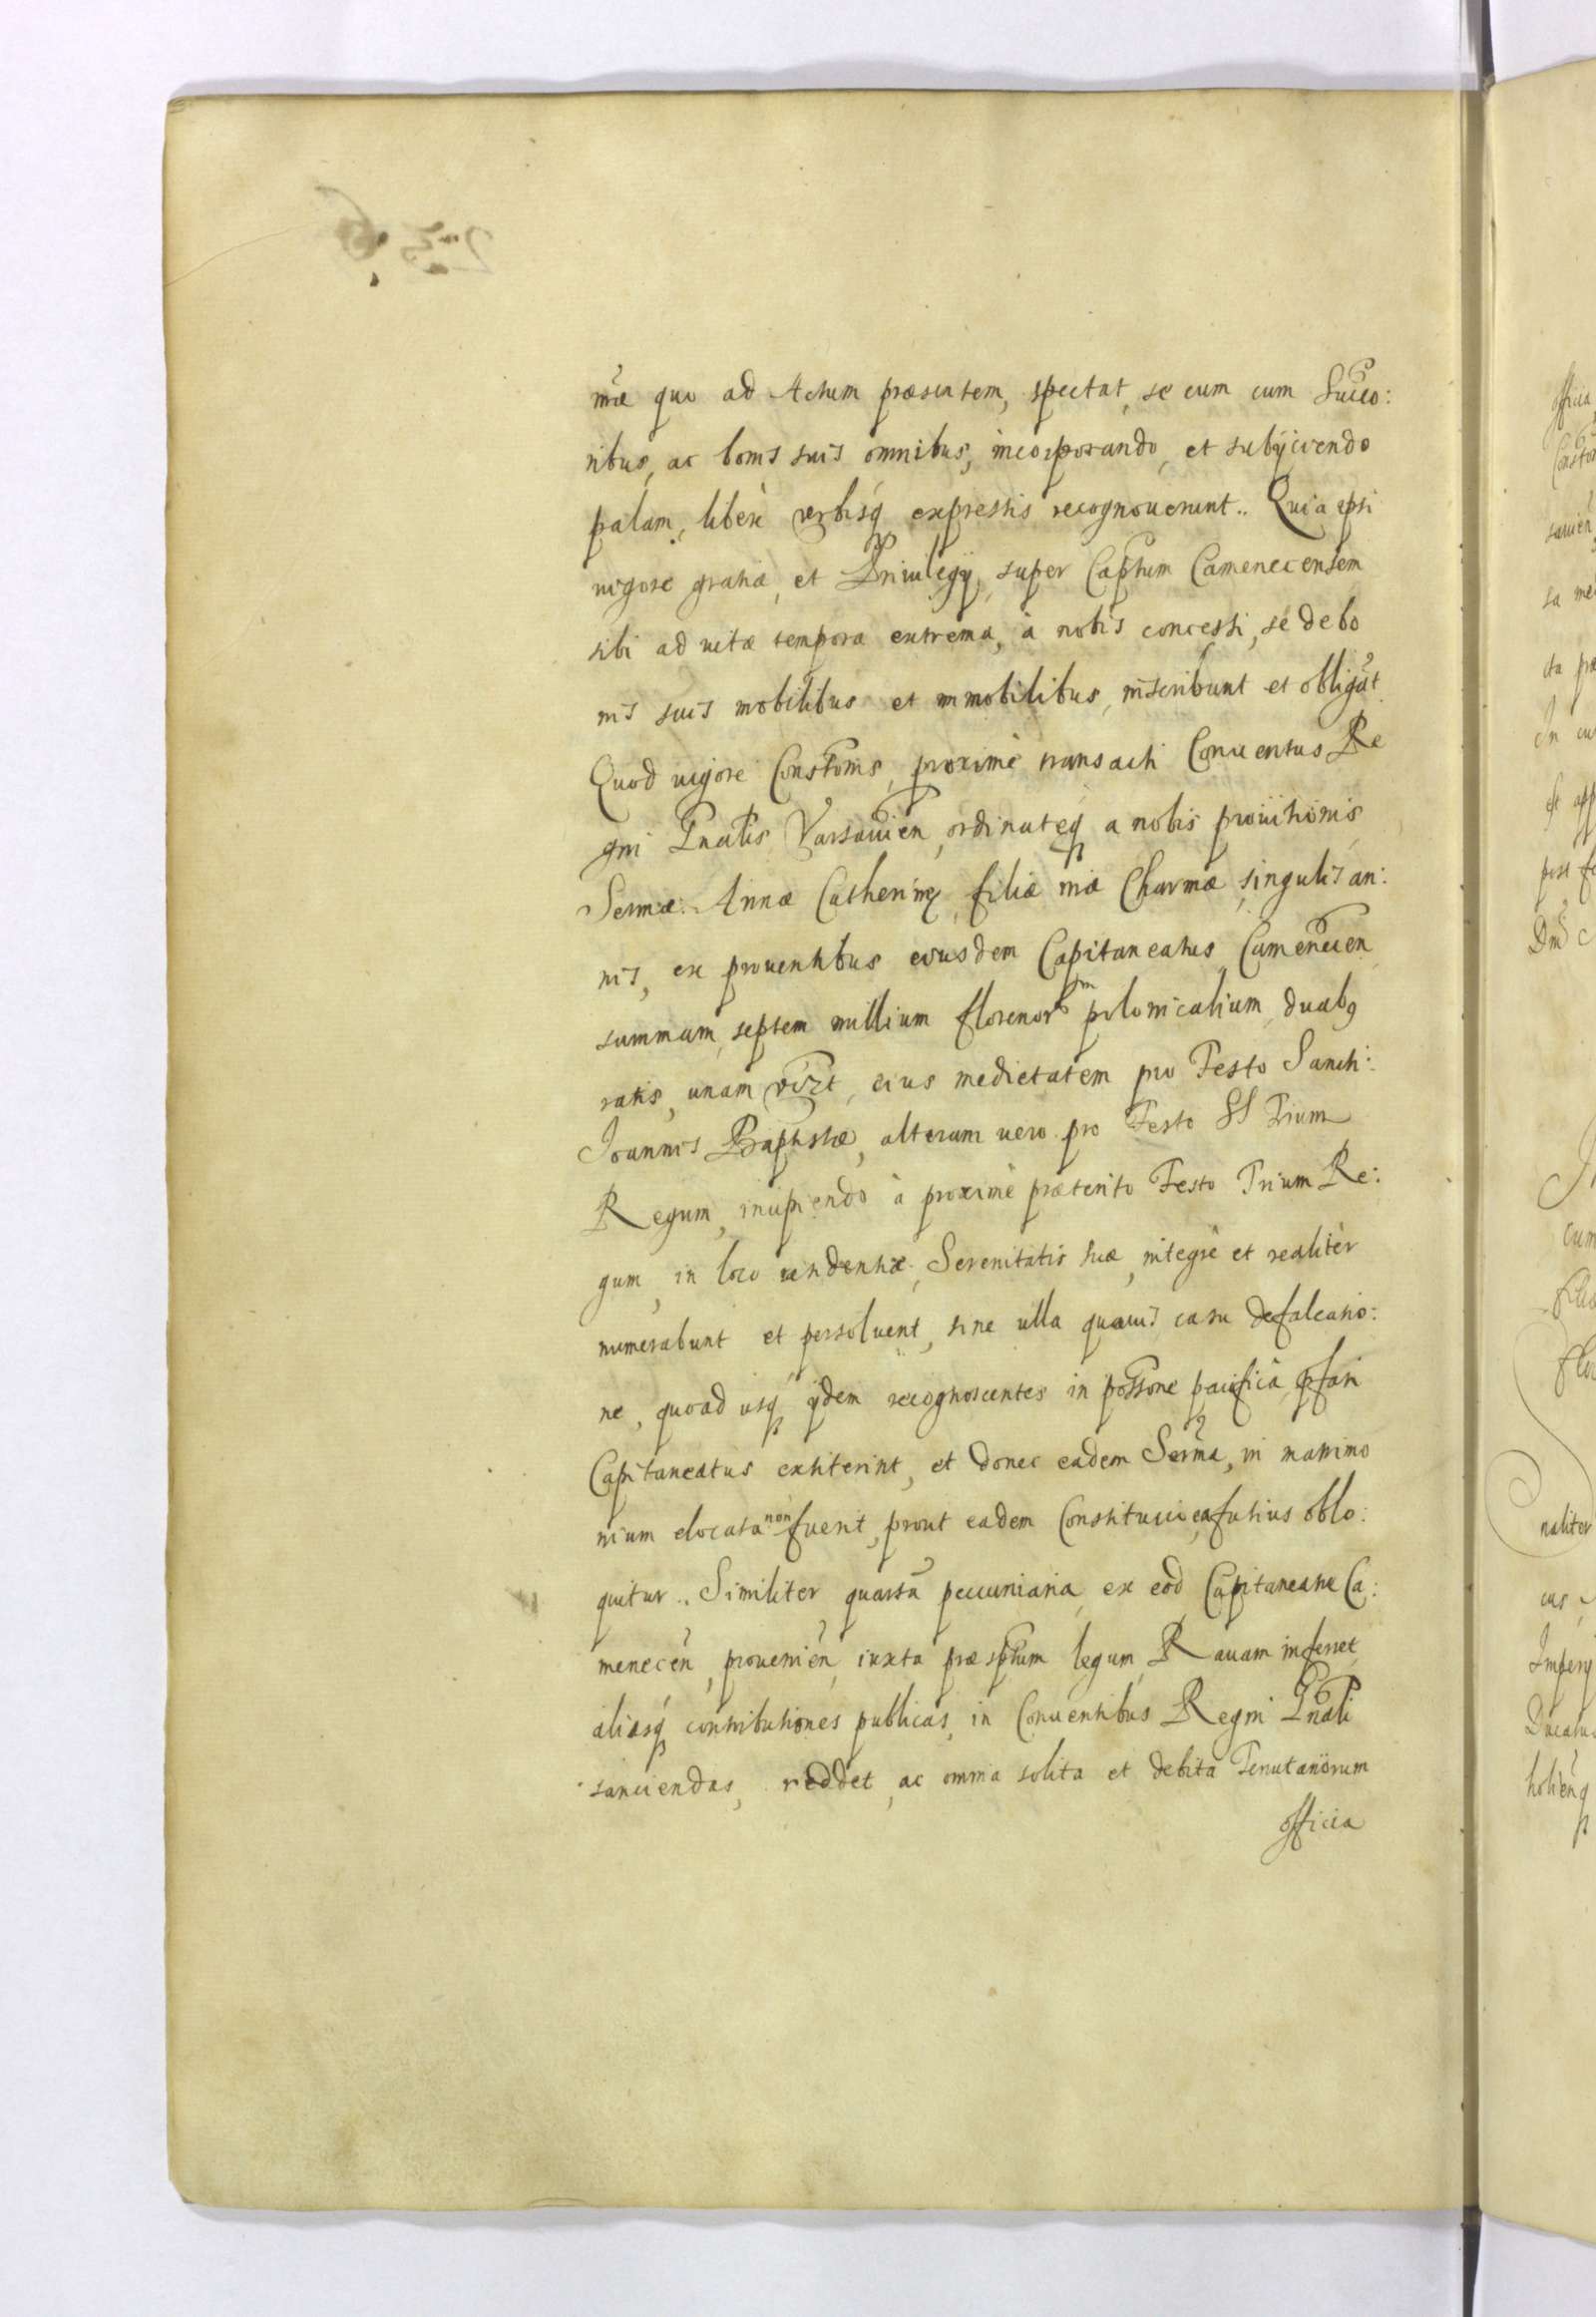 mæ quo ad Actum præsentem, spectat, se cum cum Succo:
ribus, ac bonis suis omnibus, incorporando, et subijciendo
palam, liberè verbisq́ expressis recognouerunt.. Quia epsi
uigore gratiæ, et Priuilegÿ, super Captum Camenecensem
sibi ad uitæ tempora extrema, à nobis concessi, se de bo
nis suis mobilibus et immobilibus, inscribunt et obligāt
Quod uigore Constōnis, proximè transacti Conuentus Re
gni Gnālis Varsauien, ordinateq a nobis prouisionis
Sermæ. Annæ Catherinæ, filiæ nræ Charmæ, singulis an:
nis, ex prouentibus eiusdem Capitaneatus Camenecen
summam, septem millium florenorm polonicalium, duabq
ratis, unam vizt, eius medietatem pro Festo Sancti:
Joannis Baptistæ, alteram uero pro Festo SS Trium
Regum, incipiendo à proximè præterito Festo Trium Re:
gum, in loco residentiæ, Serenitatis suæ, integrè et realiter
numerabunt et persoluent, sine ulla quauis casu defalcatio:
ne, quoad usq́ ijdem recognoscentes in possone pacificà pfati
Capitaneatus extiterint, et donec eadem Serma, in matrimo
nium elocata non fuerit, prout eadem Constitucio, ea fusius oblo:
quitur.. Similiter quartā pecuniaria, ex eod Capitaneatu Ca:
menecēn, prouenien, iuxta præsptum legum, Rauam inferret,
aliasq́ contributiones publicas, in Conuentibus Regni Gnāli
sanciendas, reddet, ac omnia solita et debita Tenutariorum
officia